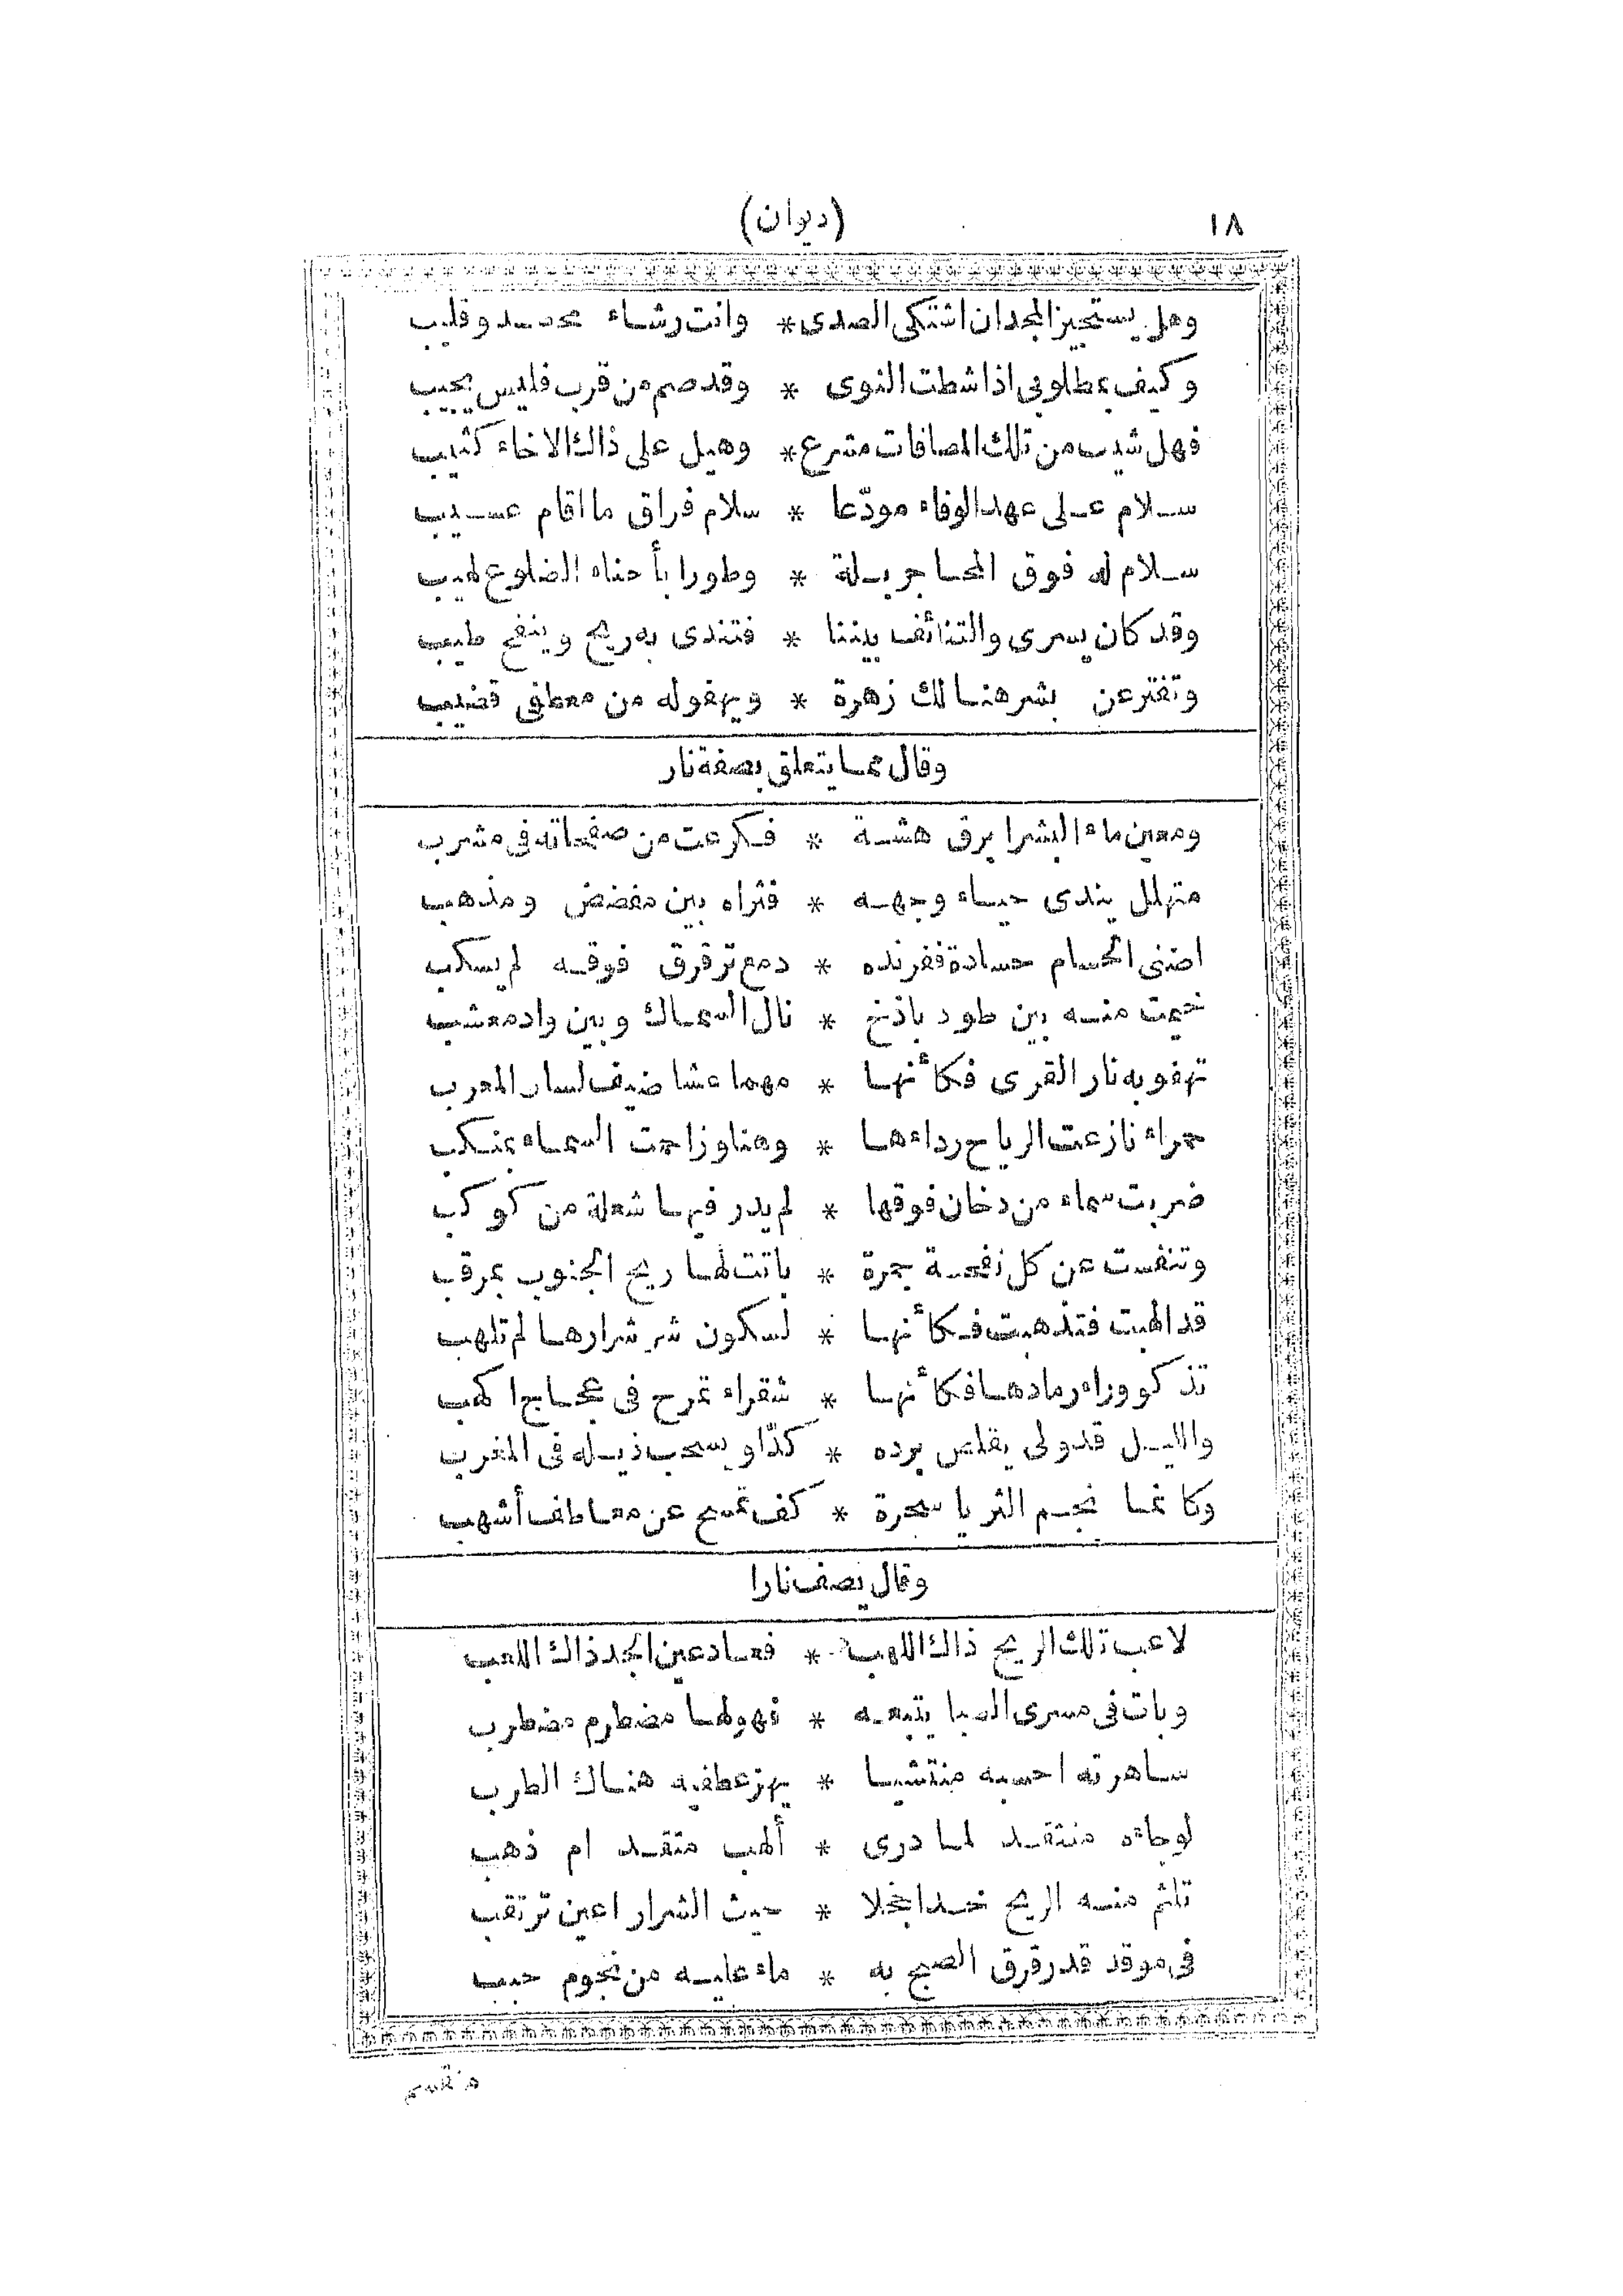 ١٨
(ديوان)
وهل يستجيز المجدان اشتكى الصدى * وانت رشاء محصد وقليب
وكيف بمطلوبى اذا شطت النوى * وقد صم من قرب فليس يجيب
فهل شيب من تلك المصافات مشرع * وهيل على ذاك الاخاء كثيب
سلام على عهد الوفاء مودّعا * سلام فراق ما اقام عسيب
سلام له فوق المحاجر بلة * وطورا بأحناء الضلوع لهيب
وقد كان يسرى والتنائف بيننا * فتندى به ريح وينفح طيب
وتفتر عن بشر هنالك زهرة * ويهفوله من معطفى قضيب
وقال مما يتعلق بصفة نار
ومعين ماء البشر ابرق هشة * فكرعت من صفحاته فى مشرب
متهلل يندى حياء وجهه * فتراه بين مفضض ومذهب
اضنى الحسام حسادة ففرنده * دمع ترقرق فوقه لم يسكب
خيمت منه بين طود باذخ * نال السماك وبين واد معشب
تهفو به نار القرى فكأنها * مهما عشا ضيف لسان المعرب
حمراء نازعت الرياح رداءها * وهنا وزاحمت السماء بمنكب
ضربت سماء من دخان فوقها * لم يدر فيها شعلة من كوكب
وتنفست عن كل نفحة جمرة * باتت لها ريح الجنوب بمرقب
قد الهبت فتذهبت فكأنها * لسكون شر شرارها لم تلهب
تذكو وراء رمادها فكأنها * شقراء تمرح فى عجاج اكهب
والليل قد ولى يقلص برده * كدّا ويسحب ذيله فى المغرب
وكانما نجم الثريا سحرة * كف تمسح عن معاطف أشهب
وقال يصف نارا
لاعب تلك الريح ذاك اللهب * فعاد عين الجد ذاك اللعب
وبات فى مسرى الصبا يتبعه * فهو لها مضطرم مضطرب
ساهرته احسبه منتشيا * يهز عطفيه هناك الطرب
لوجاءه منتقد لما درى * ألهب متقد ام ذهب
تلثم منه الريح خدا خجلا * حيث الشرار اعين ترتقب
فى موقد قد رقرق الصبح به * ماء عليه من نجوم حبب
منقسم